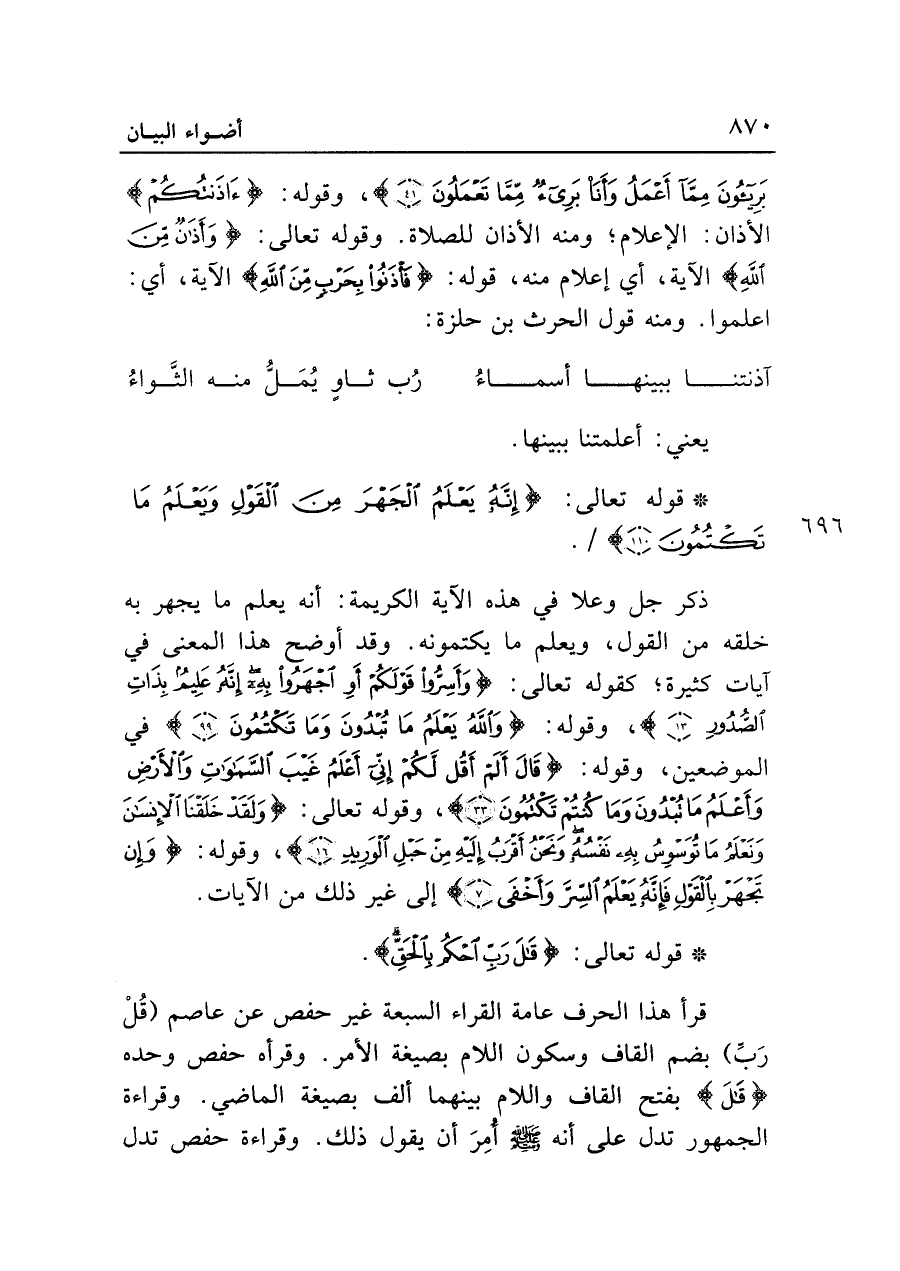 ٨٧٠ أضواء البيان
بَرِيٓـُٔونَ مِمَّآ أَعْمَلُ وَأَنَا۠ بَرِىٓءٌ مِّمَّا تَعْمَلُونَ ﴿٤١﴾﴾، وقوله: ﴿ءَاذَنتُكُمْ﴾
الأذان: الإعلام؛ ومنه الأذان للصلاة. وقوله تعالى: ﴿وَأَذَٰنٌ مِّنَ
ٱللَّهِ﴾ الآية، أي إعلام منه، قوله: ﴿فَأْذَنُوا۟ بِحَرْبٍ مِّنَ ٱللَّهِ﴾ الآية، أي:
اعلموا. ومنه قول الحرث بن حلزة:
آذنتنا ببينها أسماءُ رُب ثاوٍ يُمَلُّ منه الثَّواءُ
يعني: أعلمتنا ببينها.
* قوله تعالى: ﴿إِنَّهُۥ يَعْلَمُ ٱلْجَهْرَ مِنَ ٱلْقَوْلِ وَيَعْلَمُ مَا
٦٩٦
تَكْتُمُونَ ﴿١١٠﴾﴾ / .
ذكر جل وعلا في هذه الآية الكريمة: أنه يعلم ما يجهر به
خلقه من القول، ويعلم ما يكتمونه. وقد أوضح هذا المعنى في
آيات كثيرة؛ كقوله تعالى: ﴿وَأَسِرُّوا۟ قَوْلَكُمْ أَوِ ٱجْهَرُوا۟ بِهِۦٓ ۖ إِنَّهُۥ عَلِيمٌۢ بِذَاتِ
ٱلصُّدُورِ ﴿١٣﴾﴾، وقوله: ﴿وَٱللَّهُ يَعْلَمُ مَا تُبْدُونَ وَمَا تَكْتُمُونَ ﴿٩٩﴾﴾ في
الموضعين، وقوله: ﴿قَالَ أَلَمْ أَقُل لَّكُمْ إِنِّىٓ أَعْلَمُ غَيْبَ ٱلسَّمَٰوَٰتِ وَٱلْأَرْضِ
وَأَعْلَمُ مَا تُبْدُونَ وَمَا كُنتُمْ تَكْتُمُونَ ﴿٣٣﴾﴾، وقوله تعالى: ﴿وَلَقَدْ خَلَقْنَا ٱلْإِنسَٰنَ
وَنَعْلَمُ مَا تُوَسْوِسُ بِهِۦ نَفْسُهُۥ ۖ وَنَحْنُ أَقْرَبُ إِلَيْهِ مِنْ حَبْلِ ٱلْوَرِيدِ ﴿١٦﴾﴾، وقوله: ﴿وَإِن
تَجْهَرْ بِٱلْقَوْلِ فَإِنَّهُۥ يَعْلَمُ ٱلسِّرَّ وَأَخْفَى ﴿٧﴾﴾ إلى غير ذلك من الآيات.
* قوله تعالى: ﴿قَٰلَ رَبِّ ٱحْكُم بِٱلْحَقِّ ۗ﴾.
قرأ هذا الحرف عامة القراء السبعة غير حفص عن عاصم (قُلْ
رَبِّ) بضم القاف وسكون اللام بصيغة الأمر. وقرأه حفص وحده
﴿قَٰلَ﴾ بفتح القاف واللام بينهما ألف بصيغة الماضي. وقراءة
الجمهور تدل على أنه ﷺ أُمِرَ أن يقول ذلك. وقراءة حفص تدل